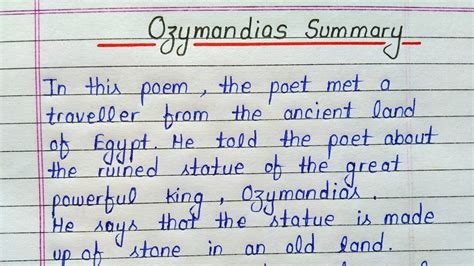 Ozymandias Summary
In this poem, the poet met a
traveller from the ancient land
of Egypt. He told the poet about
the ruined statue of the great
powerful king, Ozymandias.
He says that the statue is made
up of stone in an old land.